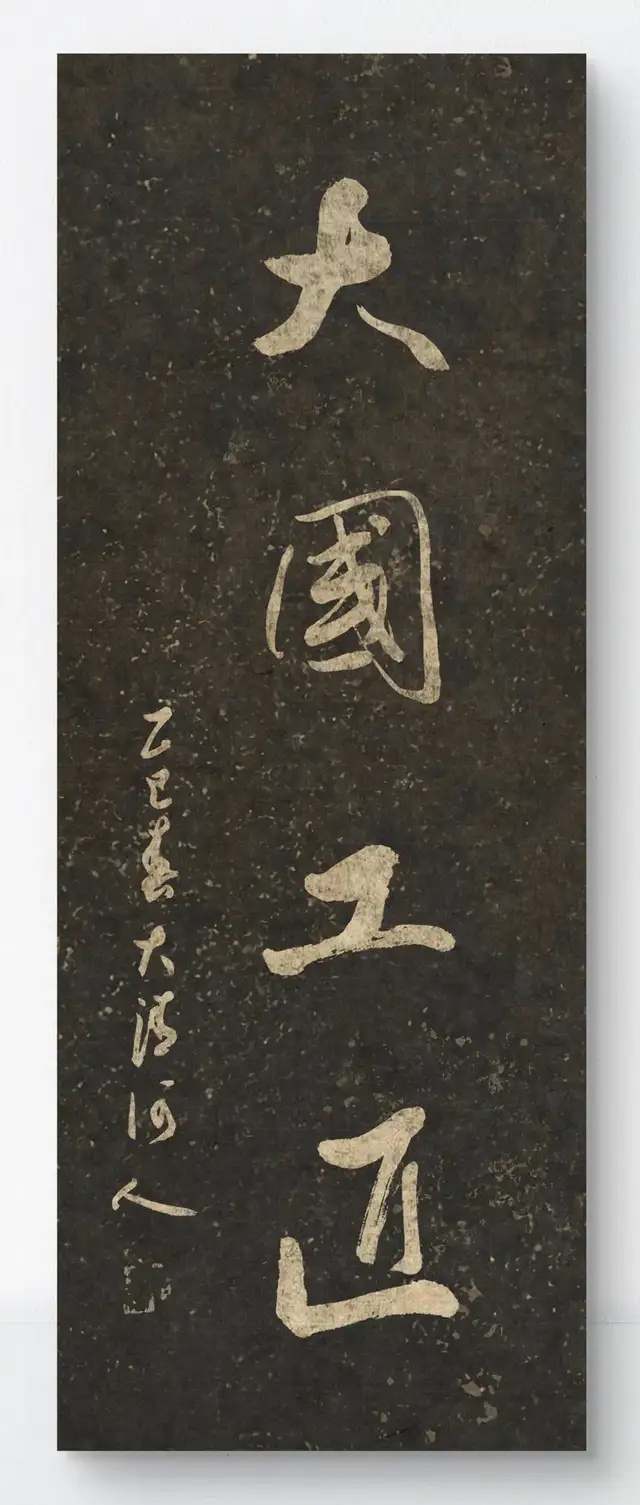 大國工匠
乙巳春大清河人